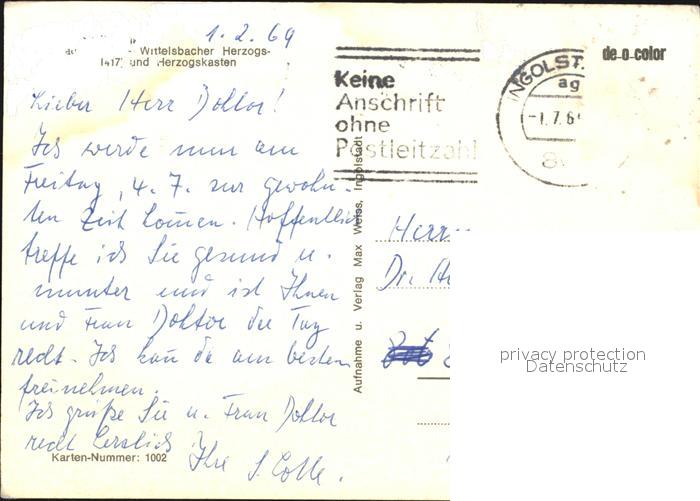 1.2.69
Wittelsbacher Herzogs-
1417) und Herzogskasten
de-o-color
Keine
Anschrift
ohne
Postleitzahl
INGOLST
ag
-1.7.6
8
Lieber Herr Doktor!
Ich werde nun am
Freitag, 4.7. zur gewohn-
ten Zeit kommen. Hoffentlich
treffe ich Sie gesund u.
munter und ist Ihnen
und Frau Doktor der Tag
recht. Ich kann da am besten
freinehmen.
Ich grüße Sie u. Frau Doktor
recht herzlich
Ihre
Karten-Nummer: 1002
Aufnahme u. Verlag Max Weiss, Ingolstadt
Herrn
Dr.
privacy protection
Datenschutz